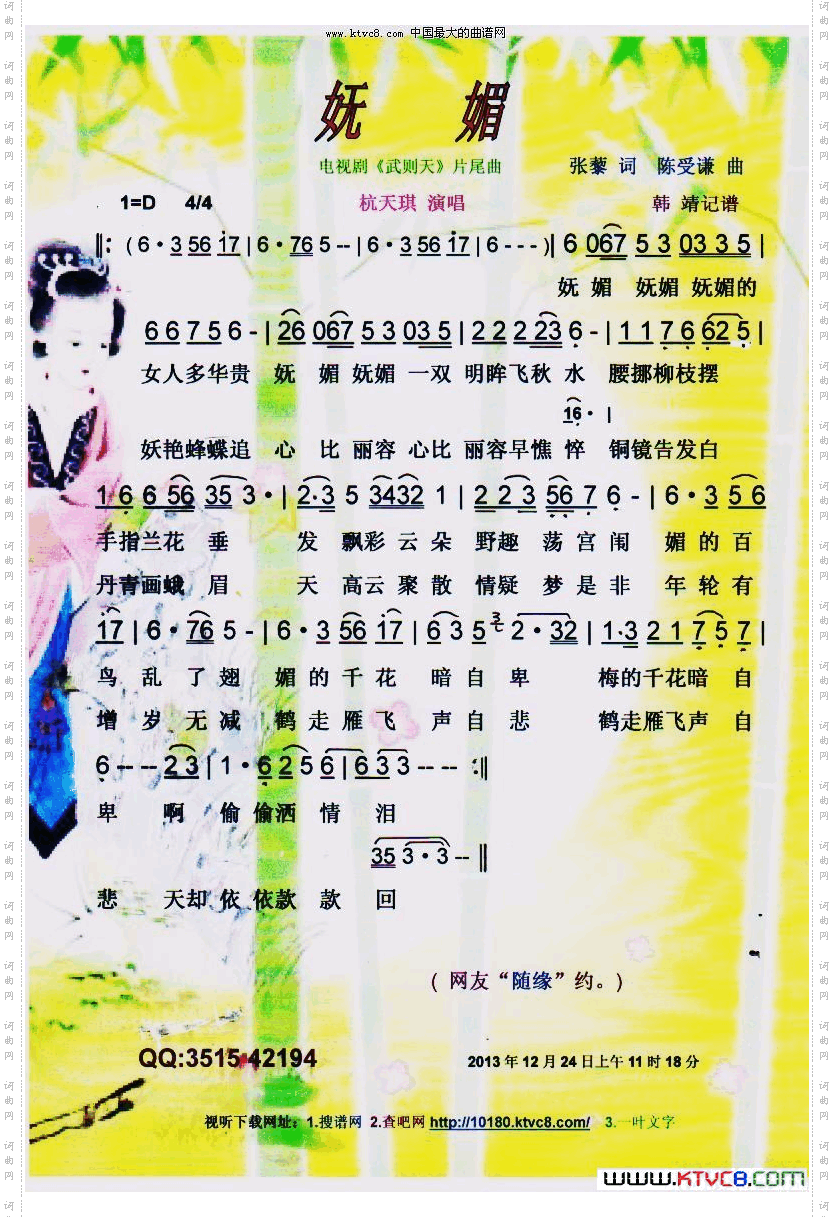 www.ktvc8.com 中国最大的曲谱网
妩 媚
电视剧《武则天》片尾曲 张藜 词 陈受谦 曲
1=D 4/4 杭天琪 演唱 韩 靖记谱
‖: ( 6·3 56 17 | 6·76 5 -- | 6·3 56 17 | 6 - - - )| 6 067 5 3 033 5 |
妩 媚 妩媚 妩媚的
6 6 7 5 6 - | 26 067 5 3 03 5 | 2 2 2 23 6 - | 1 1 7 6 62 5 |
女人多华贵 妩 媚 妩媚 一双 明眸飞秋 水 腰挪柳枝摆
16· |
妖艳蜂蝶追 心 比 丽容 心比 丽容早憔 悴 铜镜告发白
1 6 6 56 35 3·| 2·3 5 3432 1 | 2 2 3 56 7 6 - | 6·3 5 6
手指兰花 垂 发 飘彩 云 朵 野趣 荡 宫 闱 媚 的 百
丹青画蛾 眉 天 高云 聚 散 情疑 梦 是 非 年 轮 有
17 | 6·76 5 - | 6·3 56 17 | 6 3 5 2·32 | 1·3 2 1 7 5 7 |
鸟 乱 了 翅 媚 的 千 花 暗 自 卑 梅的千花暗 自
增 岁 无 减 鹤 走 雁 飞 声 自 悲 鹤走雁飞声 自
6 -- -- 2 3 | 1·6 2 5 6 | 6 3 3 -- -- :‖
卑 啊 偷 偷洒 情 泪
35 3·3 -- ‖
悲 天却 依 依款 款 回
( 网友“随缘”约。)
QQ:351542194 2013年12月24日上午11时18分
视听下载网址：1.搜谱网 2.查吧网 http://10180.ktvc8.com/ 3.一叶文字
www.KTVC8.com